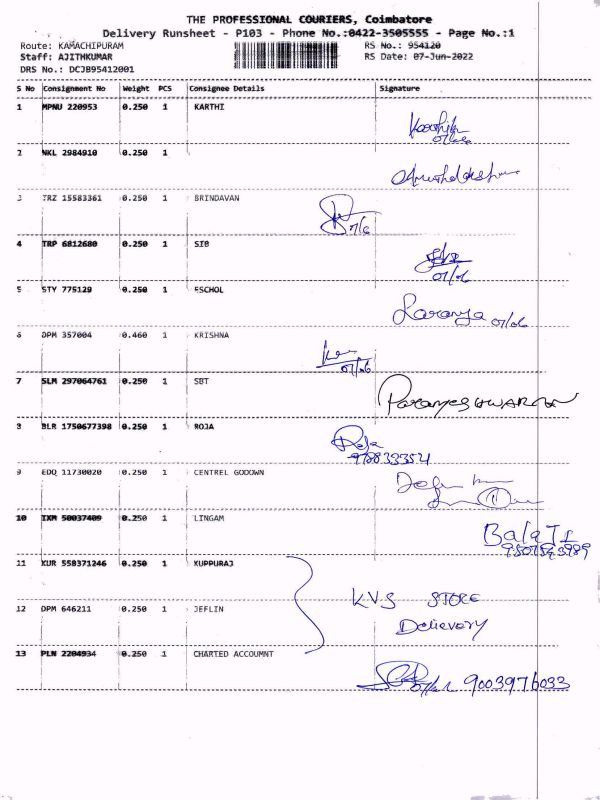 THE PROFESSIONAL COURIERS, Coimbatore
Delivery Runsheet - P103 - Phone No.:0422-3505555 - Page No.:1
Route: KAMACHIPURAM RS No.: 954120
Staff: AJITHKUMAR RS Date: 07-Jun-2022
DRS No.: DCJB95412001
S No Consignment No Weight PCS Consignee Details Signature
1 MPNU 220953 0.250 1 KARTHI
07/06
2 NKL 2984910 0.250 1
3 TRZ 15583361 0.250 1 BRINDAVAN
07/6
4 TRP 6812680 0.250 1 SIB
07/06
5 STY 775129 0.250 1 ESCHOL
Saranya 07/06
6 DPM 357004 0.460 1 KRISHNA
07/06
7 SLM 297064761 0.250 1 SBT
Parameshwaran
8 BLR 1750677398 0.250 1 ROJA
Roja
9788333521
9 EDQ 11730020 0.250 1 CENTREL GODOWN
10 IXM 50037409 0.250 1 LINGAM
BalaJI
11 KUR 558371246 0.250 1 KUPPURAJ
KVS STORE
12 DPM 646211 0.250 1 JEFLIN
Delievery
13 PLN 2204934 0.250 1 CHARTED ACCOUMNT
9003976033